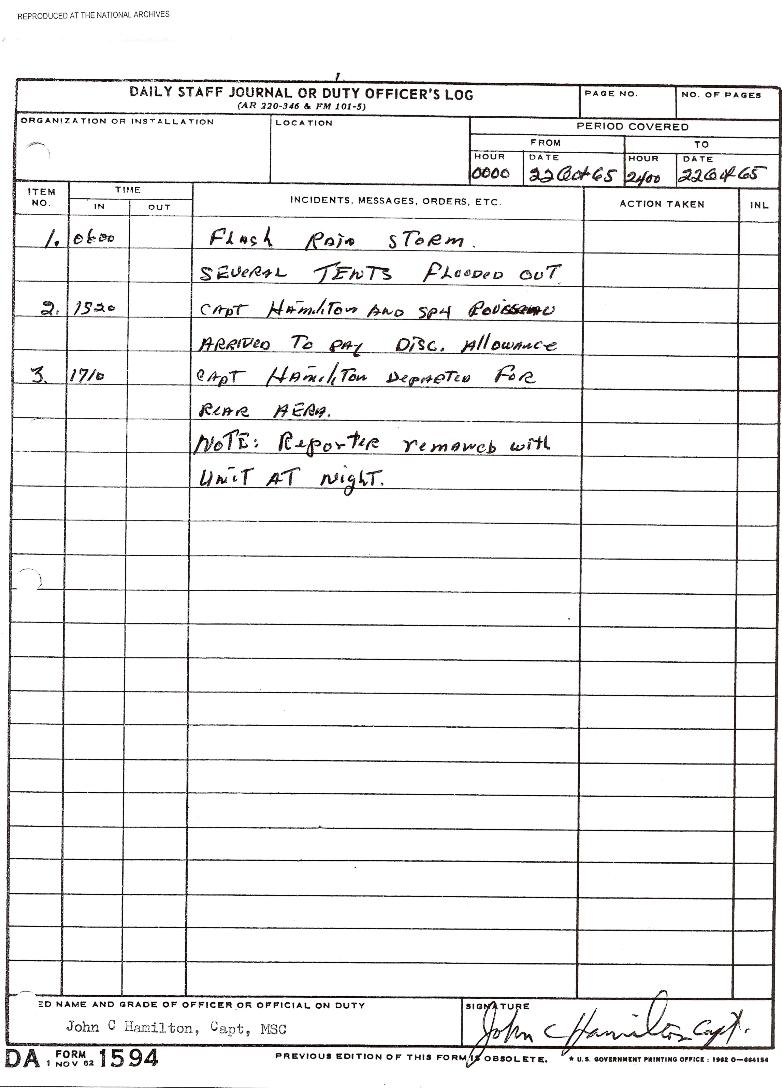 REPRODUCED AT THE NATIONAL ARCHIVES
DAILY STAFF JOURNAL OR DUTY OFFICER'S LOG
(AR 220-346 & FM 101-5)
PAGE NO.
NO. OF PAGES
ORGANIZATION OR INSTALLATION
LOCATION
PERIOD COVERED
FROM
TO
HOUR
DATE
HOUR
DATE
0000
22 Oct 65
2400
22 Oct 65
ITEM NO.
TIME
IN
OUT
INCIDENTS, MESSAGES, ORDERS, ETC.
ACTION TAKEN
INL
1. 0600 Flash Rain STORM.
SEVERAL TENTS FLOODED OUT
2. 1520 CAPT HAmilton AND SP4
ARRIVED TO PAY DISC. Allowance
3. 1710 CAPT HAmilTON DepArTeD FoR
REAR AERA.
NOTE: Reporter with
UNIT AT Night.
ED NAME AND GRADE OF OFFICER OR OFFICIAL ON DUTY
John C Hamilton, Capt, MSC
SIGNATURE
John C Hamilton Capt.
DA FORM 1 NOV 62 1594
PREVIOUS EDITION OF THIS FORM IS OBSOLETE.
* U.S. GOVERNMENT PRINTING OFFICE : 1962 O-664154